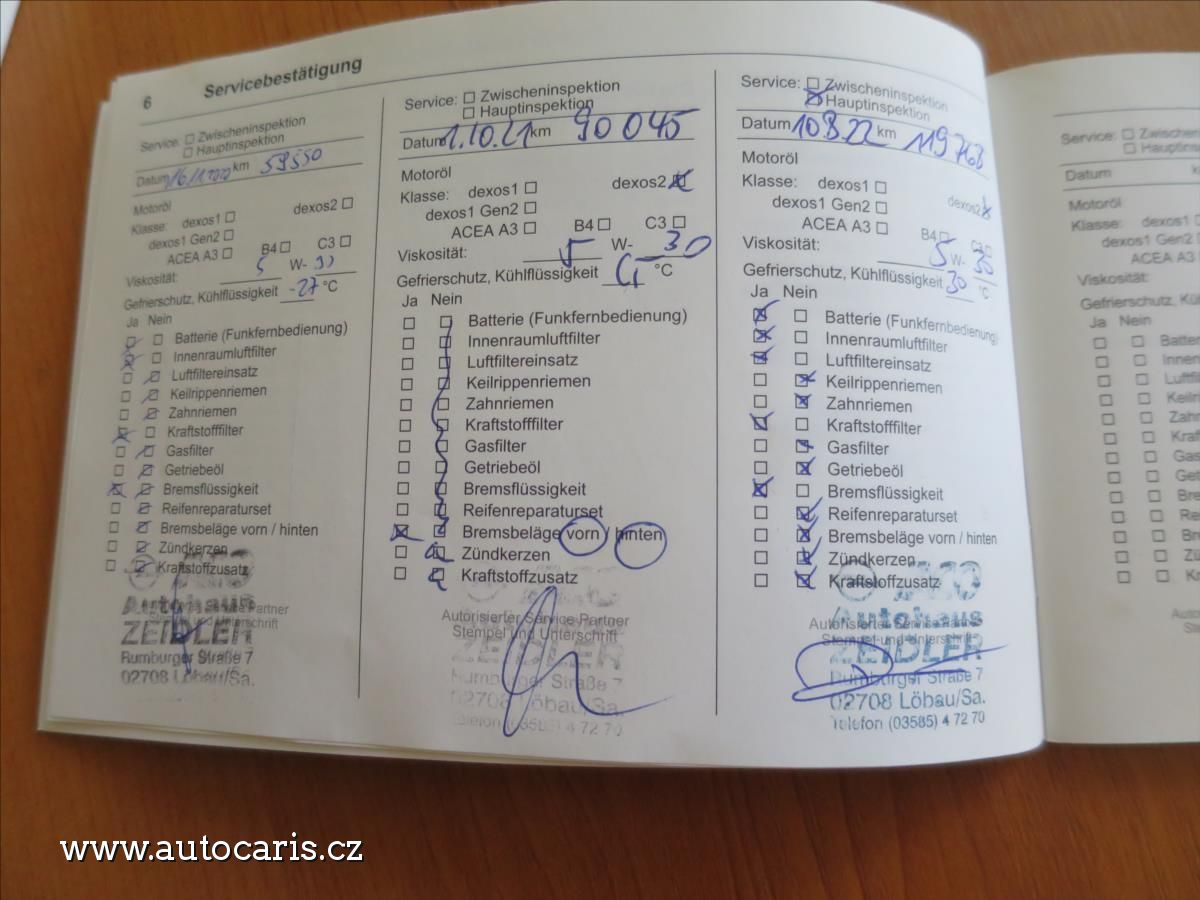 6 Servicebestätigung
Service: Zwischeninspektion
Hauptinspektion
Datum km 59550
Motoröl
Klasse: dexos1 dexos2
dexos1 Gen2
ACEA A3 B4 C3
Viskosität: 5 W- 30
Gefrierschutz, Kühlflüssigkeit -27 °C
Ja Nein
Batterie (Funkfernbedienung)
Innenraumluftfilter
Luftfiltereinsatz
Keilrippenriemen
Zahnriemen
Kraftstofffilter
Gasfilter
Getriebeöl
Bremsflüssigkeit
Reifenreparaturset
Bremsbeläge vorn / hinten
Zündkerzen
Kraftstoffzusatz
Autohaus
ZEIDLER
Rumburger Straße 7
02708 Löbau/Sa.
Service: Zwischeninspektion
Hauptinspektion
Datum 1.10.21 km 90045
Motoröl
Klasse: dexos1 dexos2
dexos1 Gen2
ACEA A3 B4 C3
Viskosität: 5 W- 30
Gefrierschutz, Kühlflüssigkeit °C
Ja Nein
Batterie (Funkfernbedienung)
Innenraumluftfilter
Luftfiltereinsatz
Keilrippenriemen
Zahnriemen
Kraftstofffilter
Gasfilter
Getriebeöl
Bremsflüssigkeit
Reifenreparaturset
Bremsbeläge vorn / hinten
Zündkerzen
Kraftstoffzusatz
Autorisierter Service Partner
Stempel und Unterschrift
ZEIDLER
Rumburger Straße 7
02708 Löbau/Sa.
Telefon (03585) 4 72 70
Service: Zwischeninspektion
Hauptinspektion
Datum 10.8.22 km 119768
Motoröl
Klasse: dexos1 dexos2
dexos1 Gen2
ACEA A3 B4 C3
Viskosität: 5 W- 30
Gefrierschutz, Kühlflüssigkeit 30 °C
Ja Nein
Batterie (Funkfernbedienung)
Innenraumluftfilter
Luftfiltereinsatz
Keilrippenriemen
Zahnriemen
Kraftstofffilter
Gasfilter
Getriebeöl
Bremsflüssigkeit
Reifenreparaturset
Bremsbeläge vorn / hinten
Zündkerzen
Kraftstoffzusatz
Autorisierter Service
Stempel und Unterschrift
Autohaus
ZEIDLER
Rumburger Straße 7
02708 Löbau/Sa.
Telefon (03585) 4 72 70
Service:
Datum
Motoröl
Klasse: dexos1
dexos1 Gen2
ACEA A3
Viskosität:
Ja Nein
www.autocaris.cz